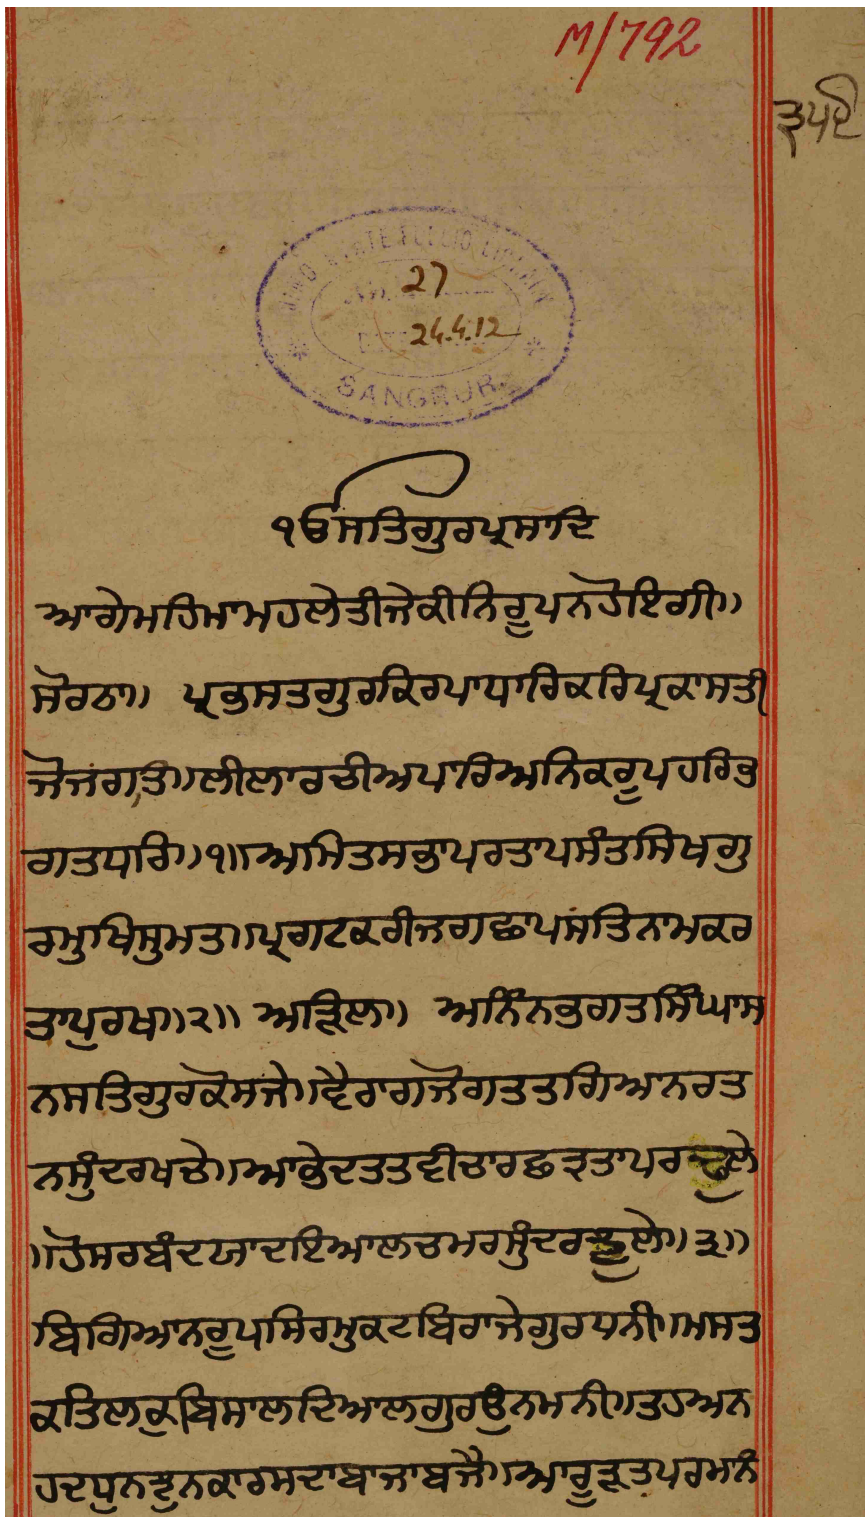 M/792
੩ਪਦੇ
JIND STATE PUBLIC LIBRARY
No. 27
24.4.12
SANGRUR
੧ਓਸਤਿਗੁਰਪ੍ਰਸਾਦਿ
ਆਗੇਮਹਿਮਾਮਹਲੇਤੀਜੇਕੀਨਿਰੂਪਨਹੋਇਗੀ॥
ਸੋਰਠਾ॥ ਪ੍ਰਭੁਸਤਗੁਰਕਿਰਪਾਧਾਰਿਕਰਿਪ੍ਰਕਾਸਤੀ
ਜੋਜਗਤ॥ਲੀਲਾਰਚੀਅਪਾਰਿਅਨਿਕਰੂਪਹਰਿਭ
ਗਤਧਾਰਿ॥੧॥ਅਮਿਤਸਭਾਪਰਤਾਪਸੰਤਸਿਖਗੁ
ਰਮੁਖਿਸੁਮਤ॥ਪ੍ਰਗਟਕਰੀਜਗਛਾਪਸਤਿਨਾਮਕਰ
ਤਾਪੁਰਖ॥੨॥ ਅੜਿਲ॥ ਅਨਿੰਨਭਗਤਸਿੰਘਾਸ
ਨਸਤਿਗੁਰਕੋਸਜੇ॥ਵੈਰਾਗਜੋਗਤਤਗਿਆਨਰਤ
ਨਸੁੰਦਰਖਚੇ॥ਆਭੇਦਤਤਵੀਚਾਰਛੜਤਾਪਰ
॥ਹੋਸਰਬੰਦਯਾਦਇਆਲਚਮਰਸੁੰਦਰਝੁਲੇ॥੩॥
ਬਿਗਿਆਨਰੂਪਸਿਰਮੁਕਟਬਿਰਾਜੇਗੁਰਧਨੀ॥ਮਸਤ
ਕਤਿਲਕੁਬਿਸਾਲਦਿਆਲਗੁਰਉਨਮਨੀ॥ਤਹਅਨ
ਹਦਧੁਨਝੁਨਕਾਰਸਦਾਬਾਜਾਬਜੈ॥ਆਰੂੜਤਪਰਮਾਨੰ